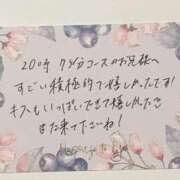 20時 75分コースのお兄様へ
すごい積極的で嬉しかったです!
キスもいっぱいできて嬉しかった
また来てださいね!